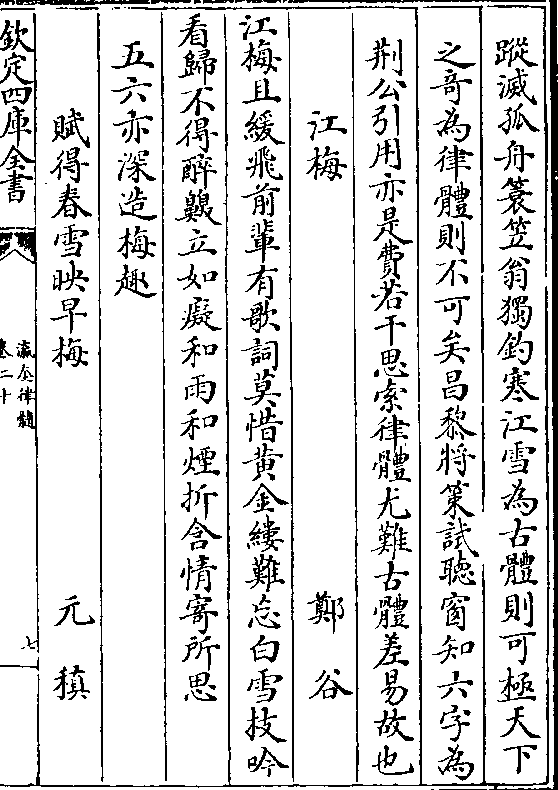 蹤滅孤舟簑笠翁獨釣寒江雪為古體則可極天下
之奇為律體則不可矣昌黎將策試聴窗知六字為
荆公引用亦是費若干思索律體尤難古體差易故也
江梅 鄭谷
江梅且緩飛前輩有歌詞莫惜黄金縷難忘白雪技吟
看歸不得醉齅立如癡和雨和煙折含情寄所思
五六亦深造梅趣
賦得春雪映早梅 元稹
欽定四庫全書
瀛奎律髓
卷二十
七